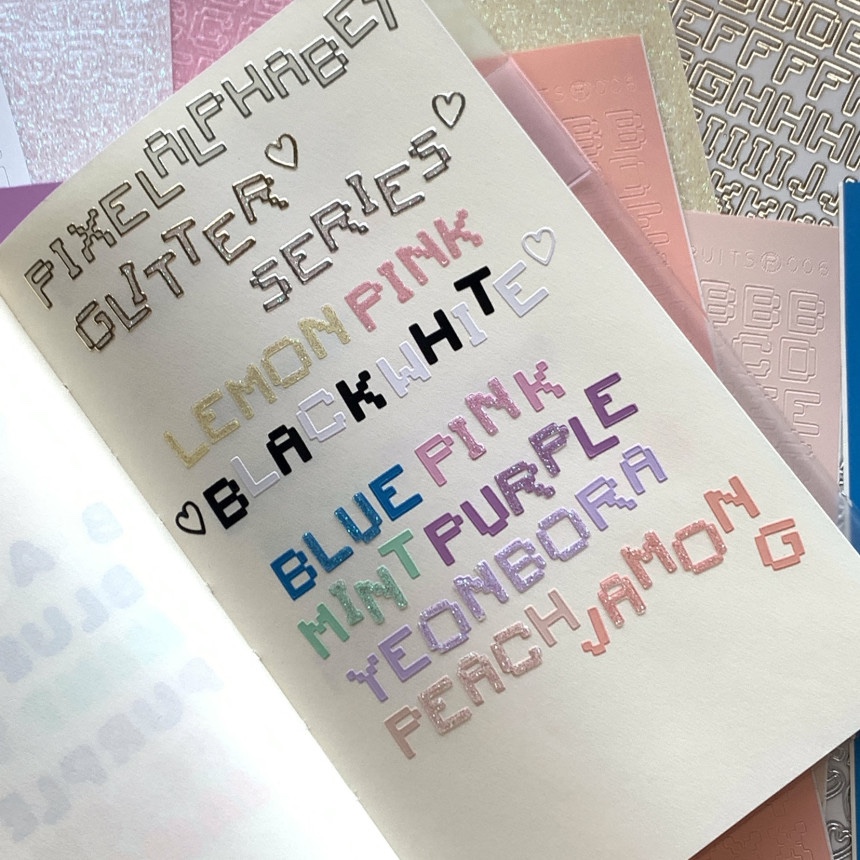 PIXEL ALPHABET
GLITTER♡
SERIES♡
LEMON PINK
♡BLACK WHITE♡
BLUE PINK
MINT PURPLE
YEONBORA
PEACH JAMONG
UITS®006